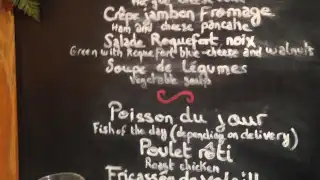 Crêpe jambon fromage
Ham and cheese pancake
Salade Roquefort, noix
Green with Roquefort blue cheese and walnuts
Soupe de Légumes
Vegetable soup
Poisson du jour
Fish of the day (depending on delivery)
Poulet rôti
Roast chicken
Fricassée de